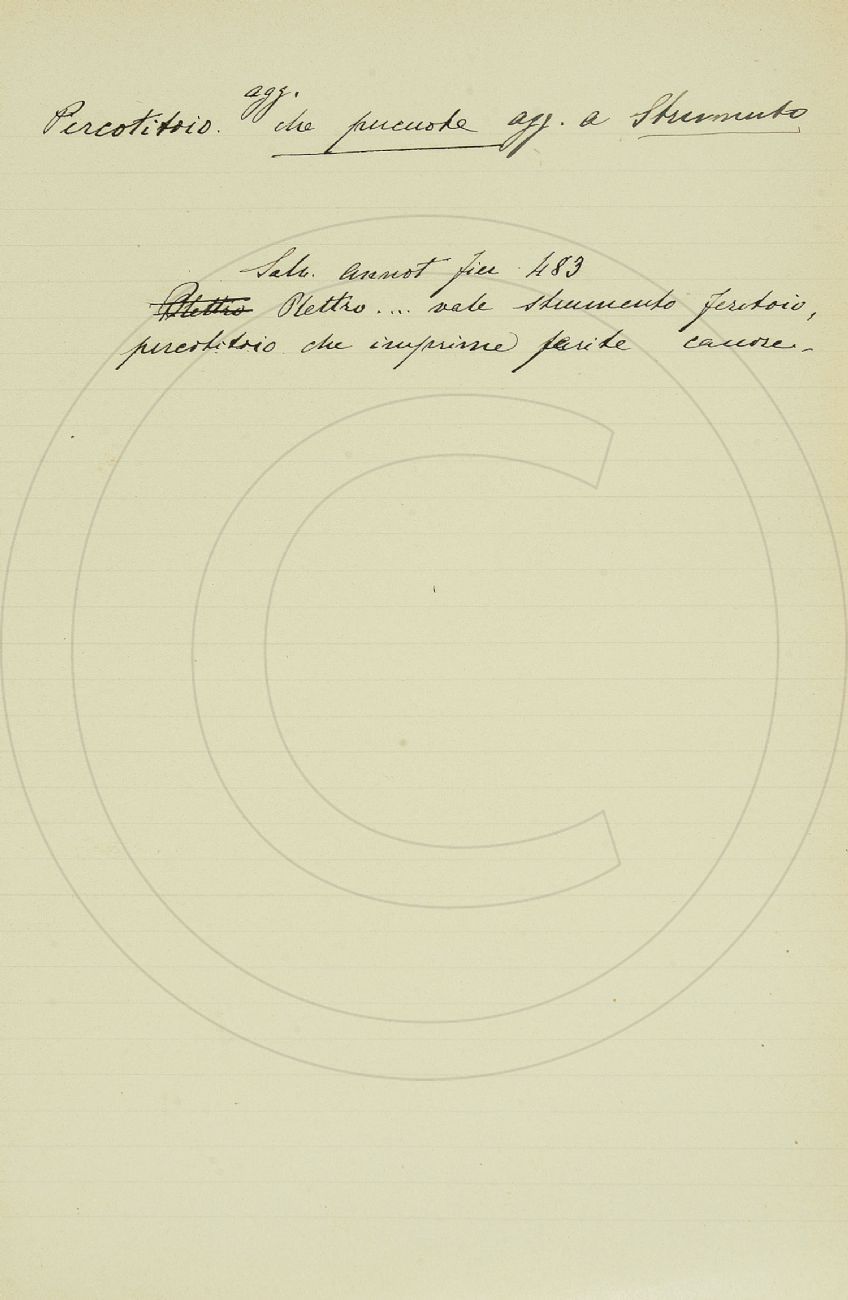 Percotitoio. agg. che percuote agg. a Strumento
Salv. annot fier 483
Plettro Plettro.... vale strumento feritoio,
percotitoio che imprime ferite canore.